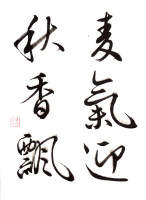 麦氣迎
秋香飄